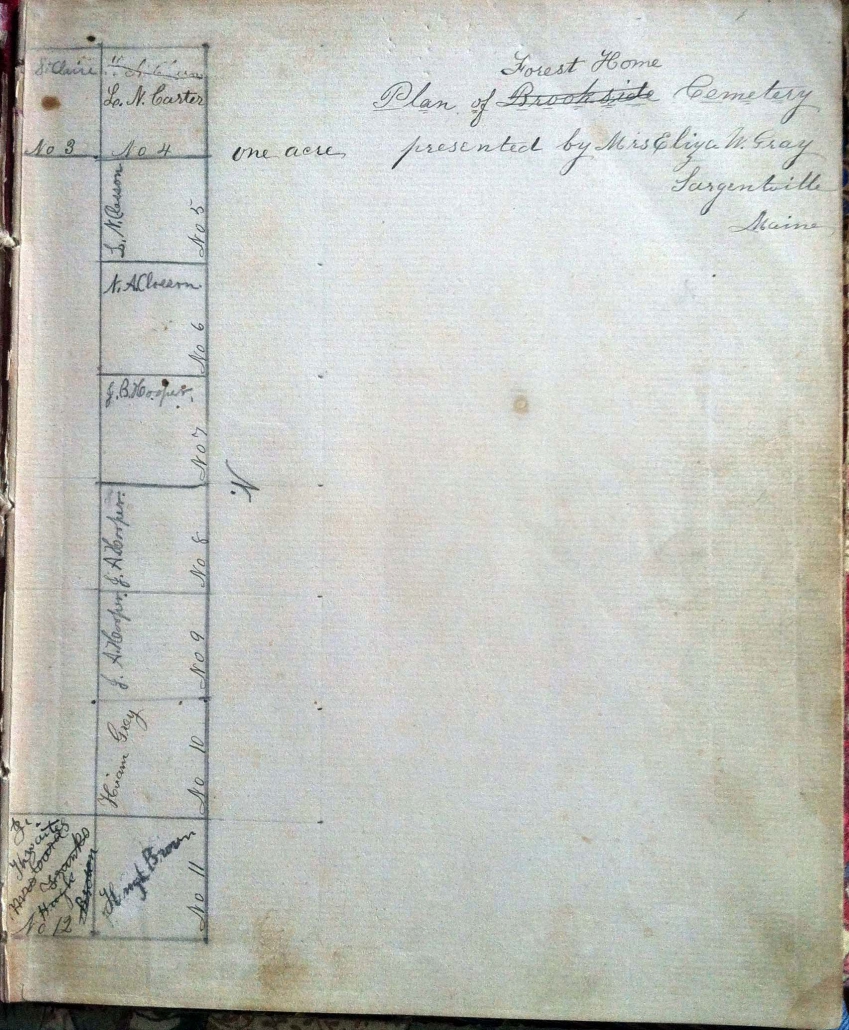 Forest Home
Plan of Brookside Cemetery
presented by Mrs Eliza W. Gray
Sargentville
Maine
one acre
St Claire
No 3
L. N. Carter
No 4
L. N. Closson
No 5
N. A. Closson
No 6
J. B. Hooper
No 7
N
J. A. Hooper
No 8
J. A. Hooper
No 9
Hiram Gray
No 10
Hugh Brown
No 11
Thwaits
Franks
Hugh
Brown
No 12